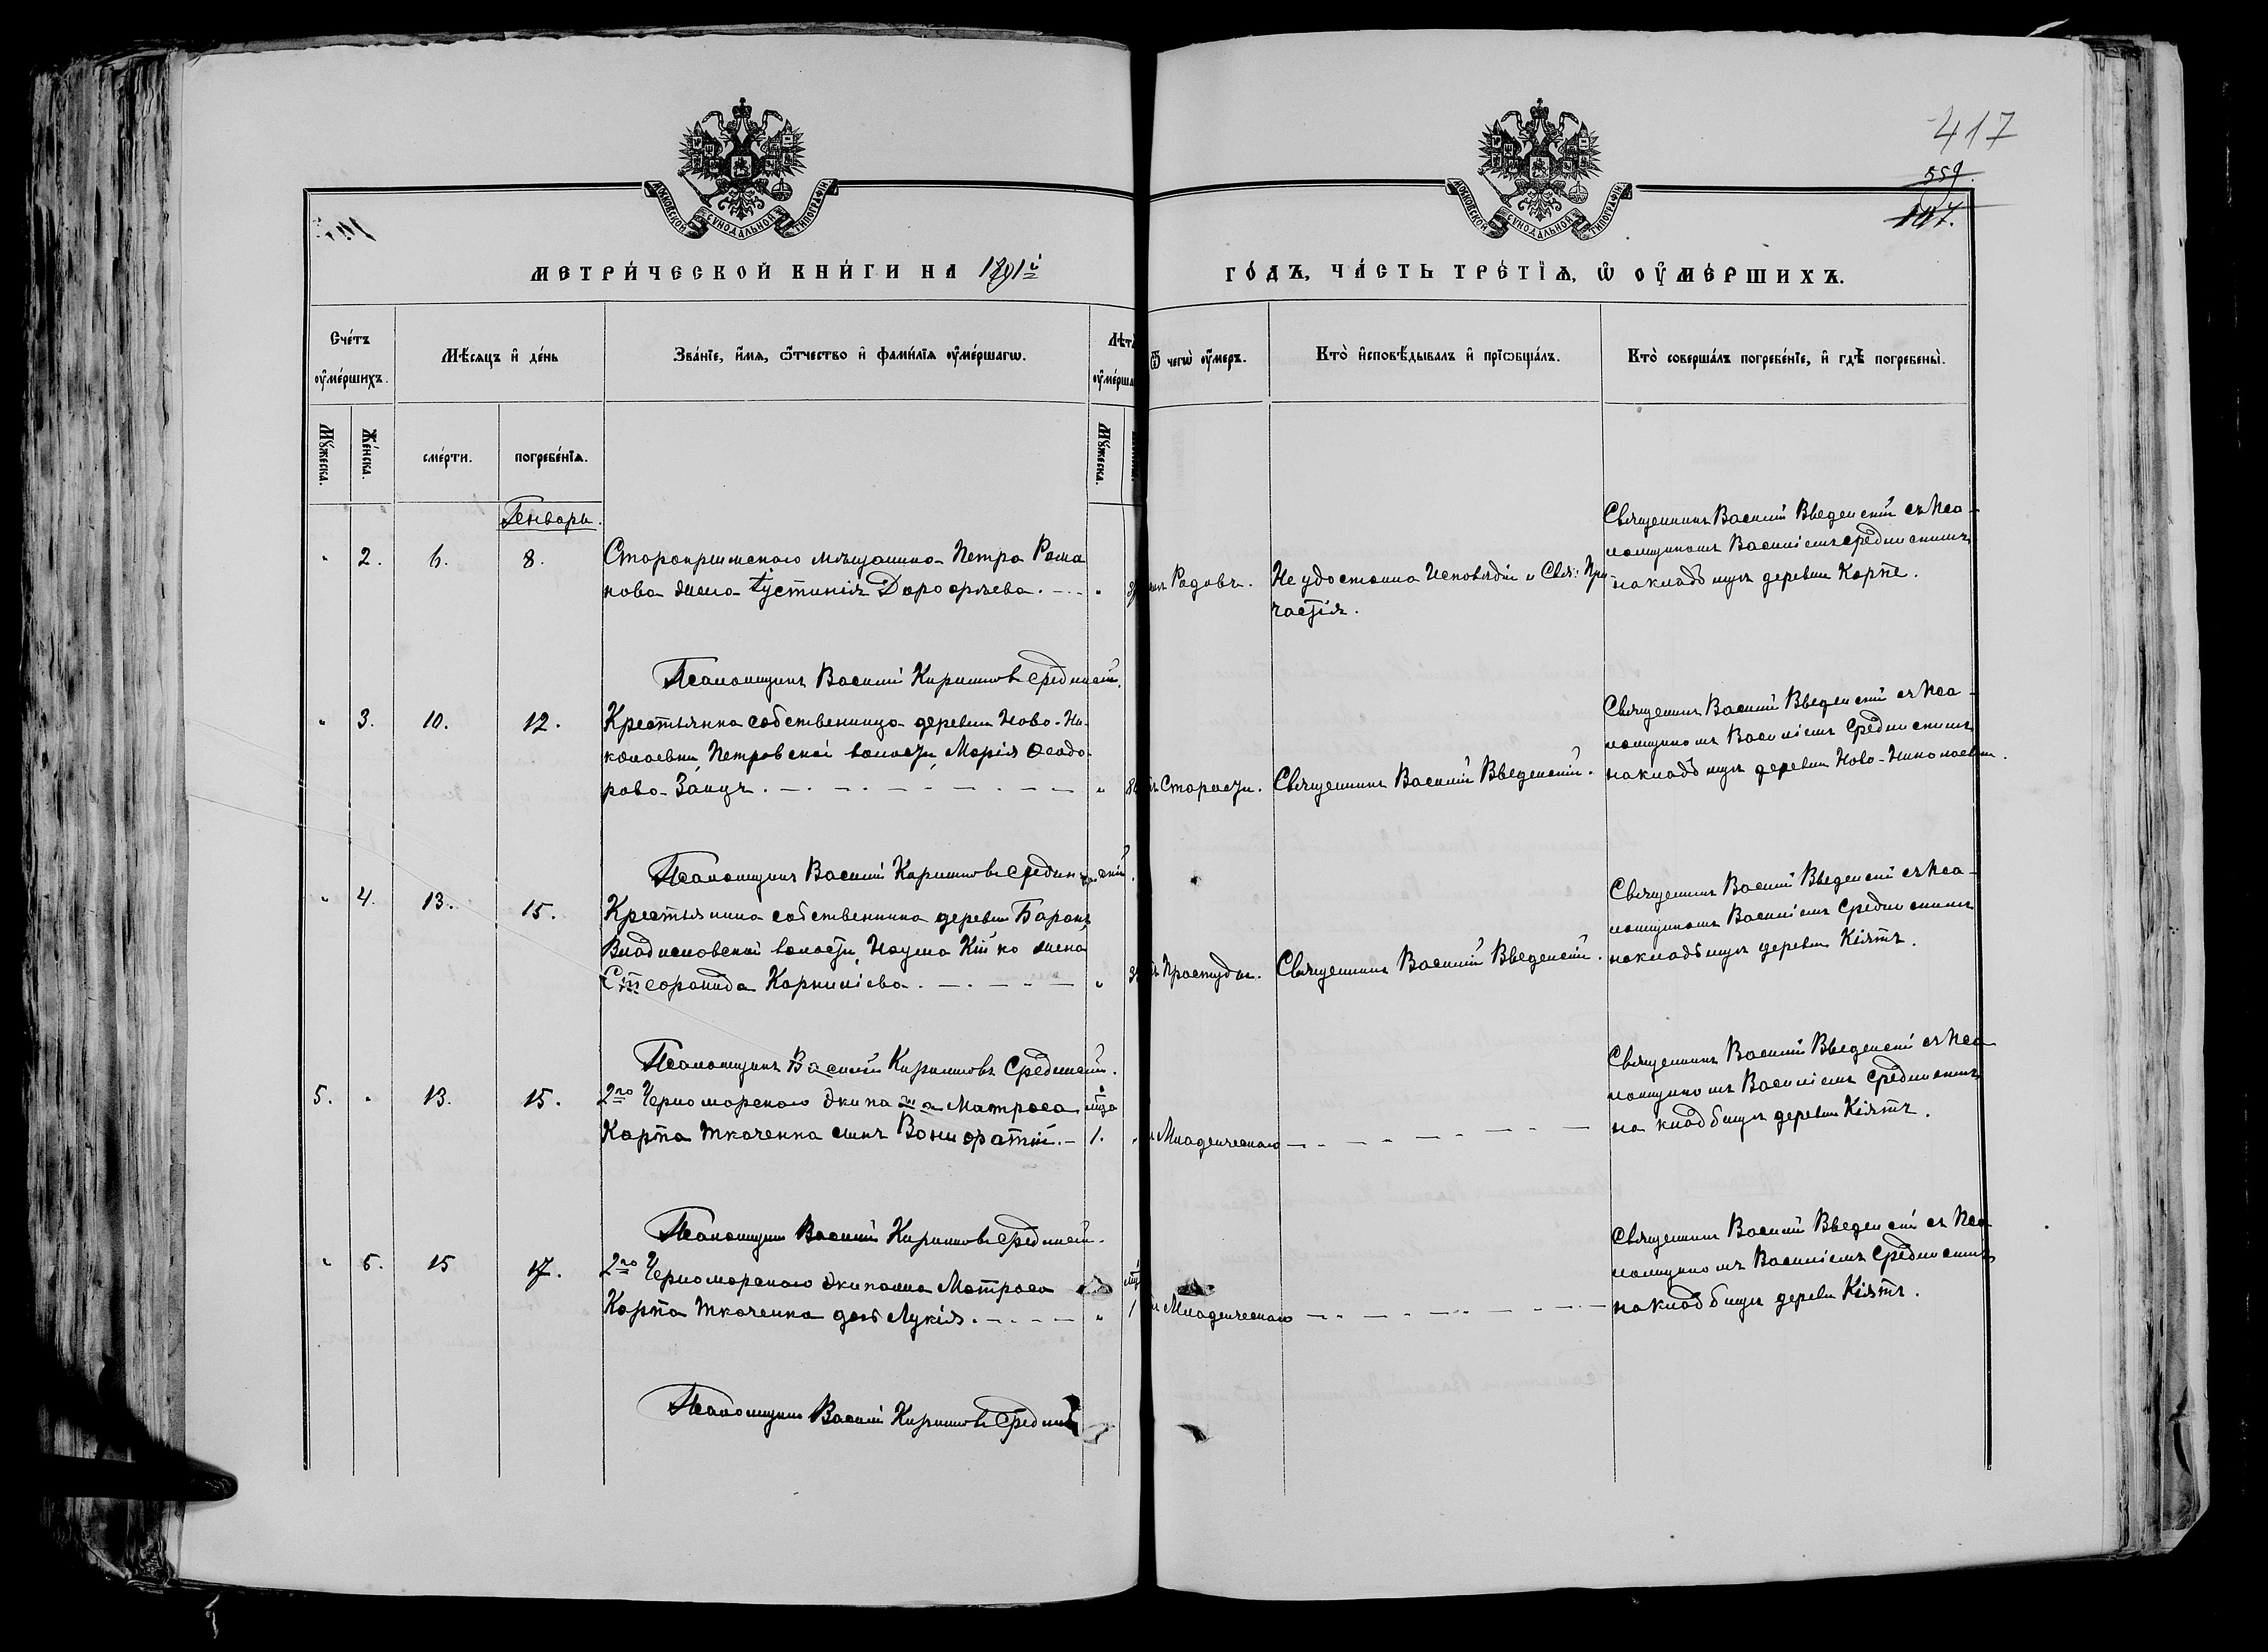 417
559
107.
МОСКОВСКОЙ СѴНОДАЛЬНОЙ ТИПОГРАФІИ
МОСКОВСКОЙ СѴНОДАЛЬНОЙ ТИПОГРАФІИ
МЕТРИ́ЧЕСКОЙ КНИ́ГИ НА 1891й
ГО́ДЪ, ЧА́СТЬ ТРЕ́ТІѦ, Ѡ҆ ОУ҆МЕ́РШИХЪ.
Сче́тъ оу҆ме́ршихъ.
Мѣ́сѧцъ и҆ де́нь
Зва́нїе, и҆́мѧ, ѻ҆́тчество и҆ фами́лїѧ оу҆ме́ршагѡ.
Лѣт
оу҆ме́рша
Ѿ чегѡ̀ оу҆́меръ.
Кто̀ и҆сповѣ́дывалъ и҆ прїѡбща́лъ.
Кто̀ соверша́лъ погребе́нїе, и҆ гдѣ̀ погребены̀.
Мꙋ́жеска.
Же́нска.
сме́рти.
погребе́нїѧ.
Мꙋ́жеска.
Генварь.
" 2. 6. 8.
Старокрымскаго мѣщанина Петра Рома
нова жена Іустинія Дорофѣева. "
Родовъ.
Не удостоина Исповѣди и Свят: При
частія.
Священникъ Василій Введенскій съ Пса-
ломщикомъ Василіемъ Срединскимъ
на кладбищѣ деревни Карпе.
Псаломщикъ Василій Кирилловъ Срединскій.
" 3. 10. 12.
Крестьянка собственница деревни Ново-Ни-
колаевки, Петровской волости, Марія Ѳеодо-
рова Заицъ. "
Старости.
Священникъ Василій Введенскій.
Священникъ Василій Введенскій съ Пса-
ломщикомъ Василіемъ Срединскимъ
на кладбищѣ деревни Ново-Николаевки.
Псаломщикъ Василій Кирилловъ Срединскій.
" 4. 13. 15.
Крестьянина собственника деревни Баракъ,
Владиславовской волости, Наума Кійко жена
Корниліева. "
Простуды.
Священникъ Василій Введенскій.
Священникъ Василій Введенскій съ Пса-
ломщикомъ Василіемъ Срединскимъ
на кладбищѣ деревни Кіятъ.
Псаломщикъ Василій Кирилловъ Срединскій.
5. " 13. 15.
2го Черноморскаго экипажа Матроса
Карпа Ткаченка сынъ Вонифатій. 1.
Младенческаго
Священникъ Василій Введенскій съ Пса-
ломщикомъ Василіемъ Срединскимъ
на кладбищѣ деревни Кіятъ.
Псаломщикъ Василій Кирилловъ Срединскій.
" 5. 15 17.
2го Черноморскаго экипажа Матроса
Карпа Ткаченка дочь Лукія. " 1
Младенческаго
Священникъ Василій Введенскій съ Пса-
ломщикомъ Василіемъ Срединскимъ
на кладбищѣ деревни Кіятъ.
Псаломщикъ Василій Кирилловъ Срединскій